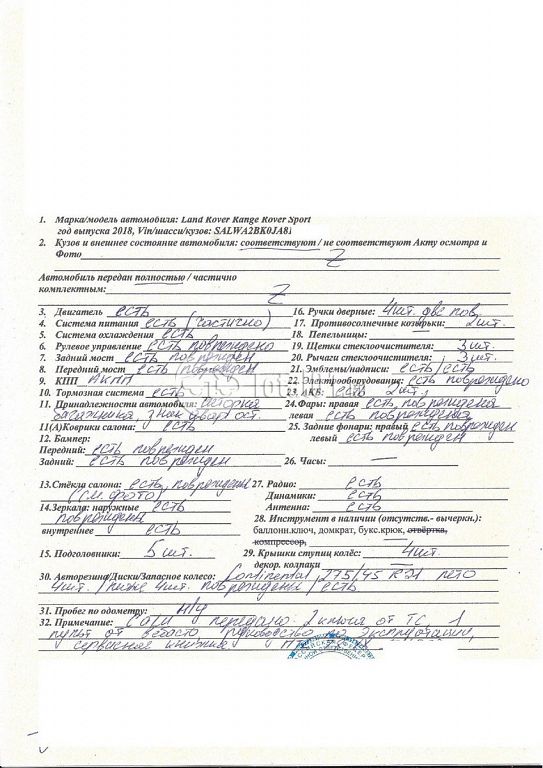 1. Марка/модель автомобиля: Land Rover Range Rover Sport
год выпуска 2018, Vin/шасси/кузов: SALWA2BK0JA81
2. Кузов и внешнее состояние автомобиля: соответствуют / не соответствуют Акту осмотра и
Фото Z
Автомобиль передан полностью / частично
комплектным: Z
3. Двигатель есть
4. Система питания есть (частично)
5. Система охлаждения есть
6. Рулевое управление есть повреждено
7. Задний мост есть поврежден
8. Передний мост есть (поврежден
9. КПП АКПП
10. Тормозная система есть
11. Принадлежности автомобиля: шторка
багажника, знак авар. ост.
11(А)Коврики салона: есть
12. Бампер:
Передний: есть поврежден
Задний: есть поврежден
13.Стёкла салона: есть, повреждены
(см. фото)
14.Зеркала: наружные есть
повреждены
внутреннее есть
15. Подголовники: 5 шт.
16. Ручки дверные: 4 шт. две пов.
17. Противосолнечные козырьки: 2 шт.
18. Пепельницы: —
19. Щетки стеклоочистителя: 3 шт.
20. Рычаги стеклоочистителя: 3 шт.
21. Эмблемы/надписи: есть/есть
22. Электрооборудование: есть повреждено
23. АКБ: есть 2 шт.
24.Фары: правая есть повреждена
левая есть повреждена
25. Задние фонари: правый есть поврежден
левый есть поврежден
26. Часы: —
27. Радио: есть
Динамики: есть
Антенна: есть
28. Инструмент в наличии (отсутств.- вычеркн.):
баллонн.ключ, домкрат, букс.крюк, отвёртка,
компрессор,
29. Крышки ступиц колёс: 4 шт.
декор. колпаки
30. Авторезина/Диски/Запасное колесо: Continental 275/45 R21 лето
4 шт. / ниже 4 шт. повреждены / есть
31. Пробег по одометру: н/у
32. Примечание: передано 2 ключа от ТС, 1
пульт от вебасто, руководство по эксплуатации,
сервисная книжка